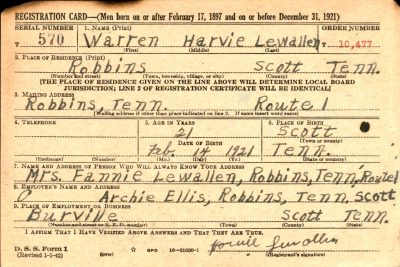 REGISTRATION CARD—(Men born on or after February 17, 1897 and on or before December 31, 1921)
SERIAL NUMBER 1. NAME (Print) ORDER NUMBER
T 570 Warren Harvie Lewallen T 10,477
(First) (Middle) (Last)
2. PLACE OF RESIDENCE (Print)
Robbins Scott Tenn.
(Number and street) (Town, township, village, or city) (County) (State)
[THE PLACE OF RESIDENCE GIVEN ON THE LINE ABOVE WILL DETERMINE LOCAL BOARD
JURISDICTION; LINE 2 OF REGISTRATION CERTIFICATE WILL BE IDENTICAL]
3. MAILING ADDRESS
Robbins, Tenn. Route 1
[Mailing address if other than place indicated on line 2. If same insert word same]
4. TELEPHONE 5. AGE IN YEARS 6. PLACE OF BIRTH
21 Scott
DATE OF BIRTH (Town or county)
Feb. 14 1921 Tenn.
(Exchange) (Number) (Mo.) (Day) (Yr.) (State or country)
7. NAME AND ADDRESS OF PERSON WHO WILL ALWAYS KNOW YOUR ADDRESS
Mrs. Fannie Lewallen, Robbins, Tenn, Route 1
8. EMPLOYER'S NAME AND ADDRESS
Archie Ellis, Robbins, Tenn. Scott
9. PLACE OF EMPLOYMENT OR BUSINESS
Burville Scott Tenn.
(Number and street or R. F. D. number) (Town) (County) (State)
I AFFIRM THAT I HAVE VERIFIED ABOVE ANSWERS AND THAT THEY ARE TRUE.
D. S. S. Form 1 GPO 16—21630-1
(Revised 1-1-42) (Registrant's signature)